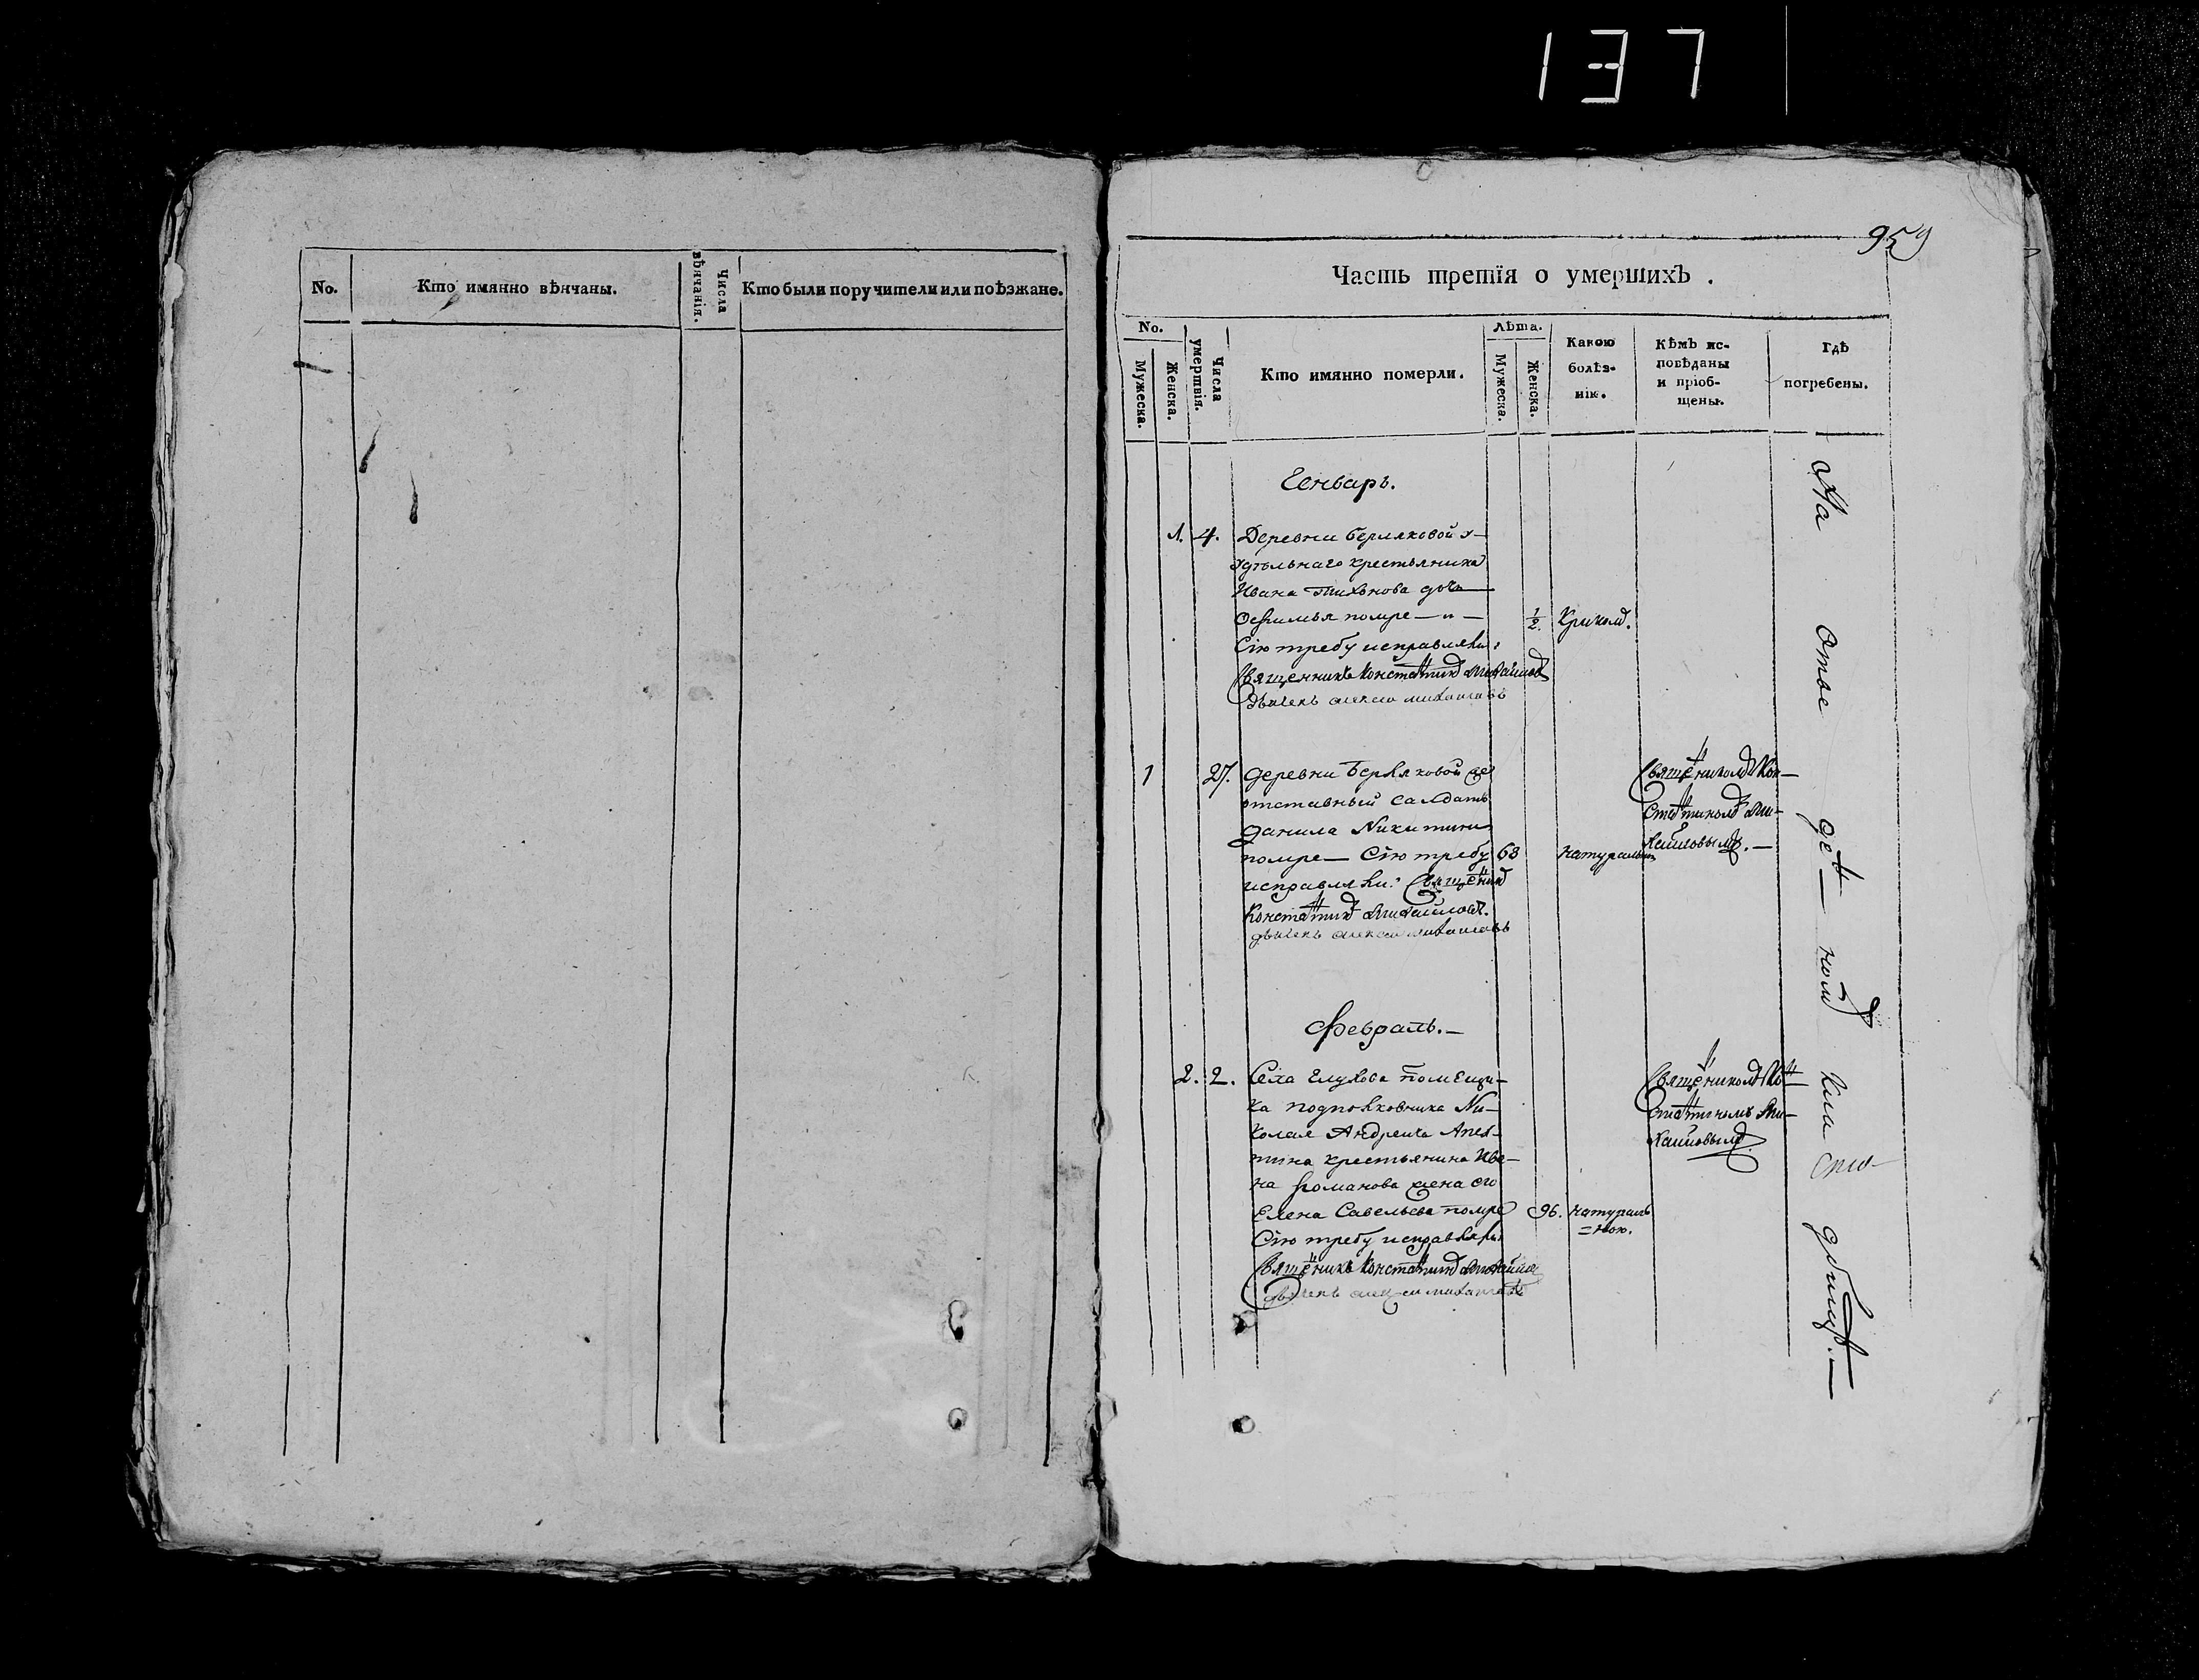 137
No.
Кто имянно вѣнчаны.
Числа вѣнчанія.
Кто были поручители или поѣзжане.
959
Часть третїя о умершихъ .
No.
Мужеска.
Женска.
Числа умертвія.
Кто имянно померли.
Лѣта.
Мужеска.
Женска.
Какою болѣз-
нію.
Кѣмъ ис-
повѣданы
и пріоб-
щены.
Гдѣ
погребены.
Генварь.
1. 4. Деревни Берляковой у-
дѣльнаго крестьянина
Ивана Тихонова дочь
помре 1/2. Крикомъ.
Сію требу исправляли:
Священникъ Константинъ Михайловъ
дьячекъ алексей михаиловъ
1 27. деревни Берляковой
отставный салдатъ
данила Никитинъ
помре — Сію требу 68 натуральн
исправляли: Священикъ
Константинъ Михайловъ.
дьячекъ алексей михаиловъ
Священикомъ Кон-
стантиномъ Ми-
хайловымъ. —
Февраль. —
2. 2. Села Елухова помещи-
ка подполковника Ни-
колая Андреича
крестьянина Ива-
на Романова жена его
Елена Савельева помре 96. натураль
=ною.
Сію требу исправляли
Священикъ Константинъ Михайлов
дьячекъ алексей михаиловъ
Священикомъ Кон-
стантиномъ Ми-
хайловымъ
На отве денномъ кла